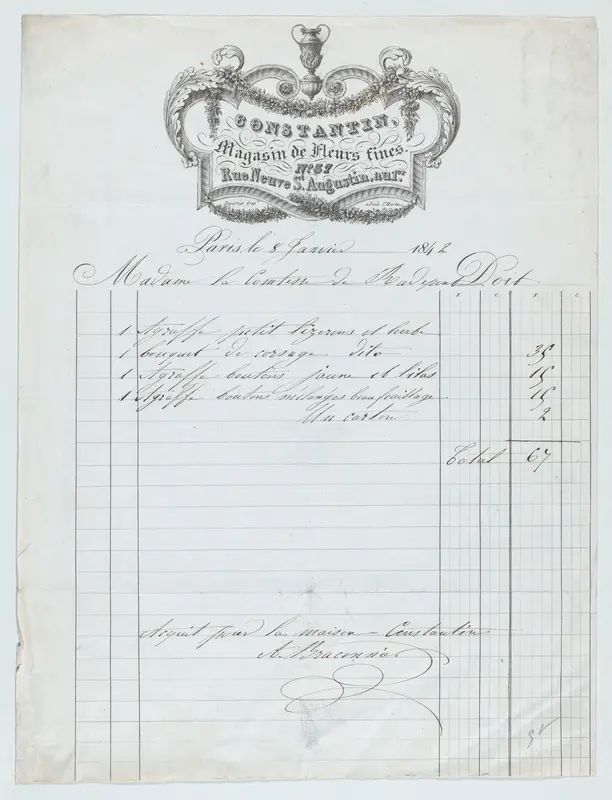 CONSTANTIN,
Magasin de Fleurs fines
No. 37
Rue Neuve St. Augustin, au 1er.
Paris, le 8 Janvier 1842
Madame la Comtesse de Doit
F. C. F. C.
1 Agraffe petit lizerons et herbe
1 bouquet de corsage dito 35
1 Agraffe boutons jaune et lilas 15
1 Agraffe boutons mélangés beau feuillage 15
Un carton 2
Total 67
Acquit pour la maison Constantin
A. Braconnier